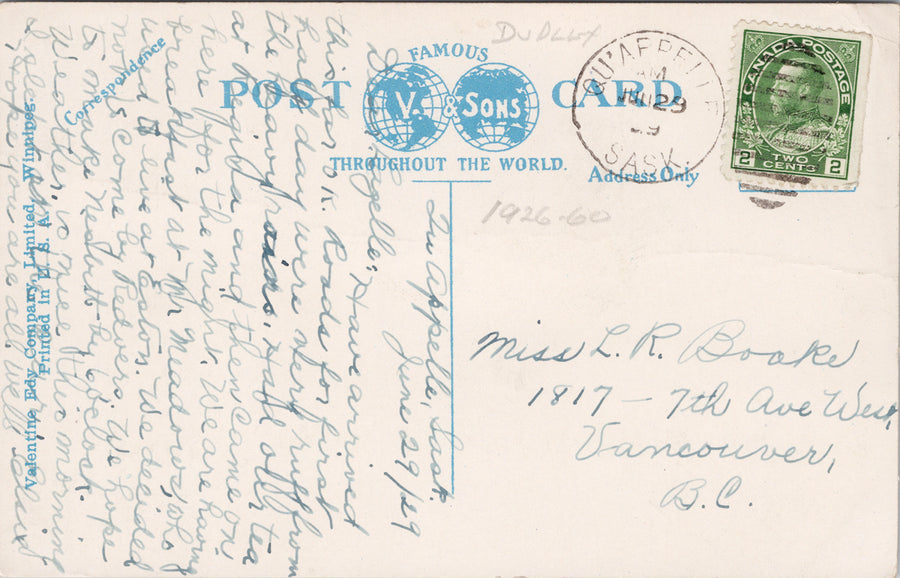 DUDLEY
FAMOUS
POST CARD
V. & SONS
THROUGHOUT THE WORLD.
Correspondence
Address Only
QU'APPELLE
AM
JUN 29
29
SASK.
CANADA POSTAGE
2 TWO CENTS 2
1926-60
Qu'Appelle, Sask.
June 29/29
Have arrived
this far. Roads for first
half day were very ruff from
the heavy rains. Had our tea
at Regina and then came on
here for the night. We are having
breakfast at Mr Meadows, who
used to live at Eaton. We decided
not to come by Redvers. We hope
to make Nesbitt by 6 o'clock.
Weather is nice this morning
Hope you are all well.
Miss L. R. Boake
1817 - 7th Ave West,
Vancouver,
B.C.
Valentine Edy Company, Limited, Winnipeg.
Printed in U. S. A.